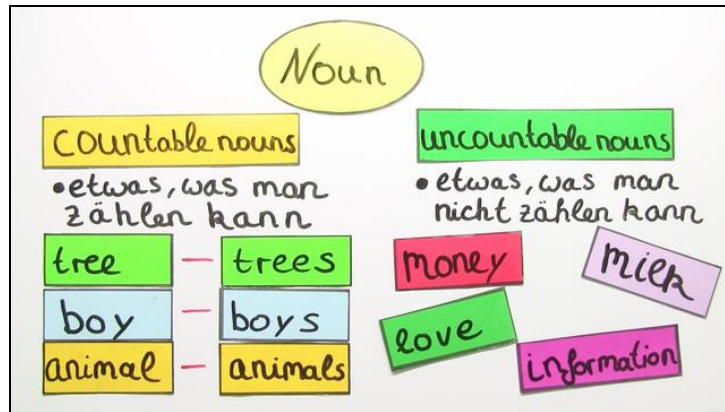 Noun
countable nouns
• etwas, was man
zählen kann
tree – trees
boy – boys
animal – animals
uncountable nouns
• etwas, was man
nicht zählen kann
money
milk
love
information